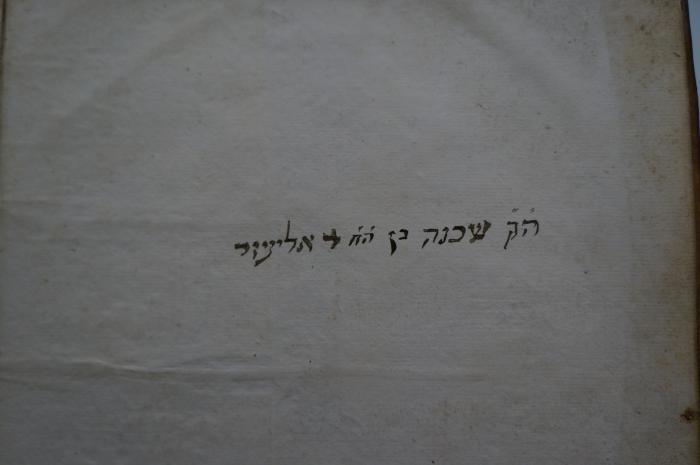 הק' שכנה בן הח' ר אליעזר